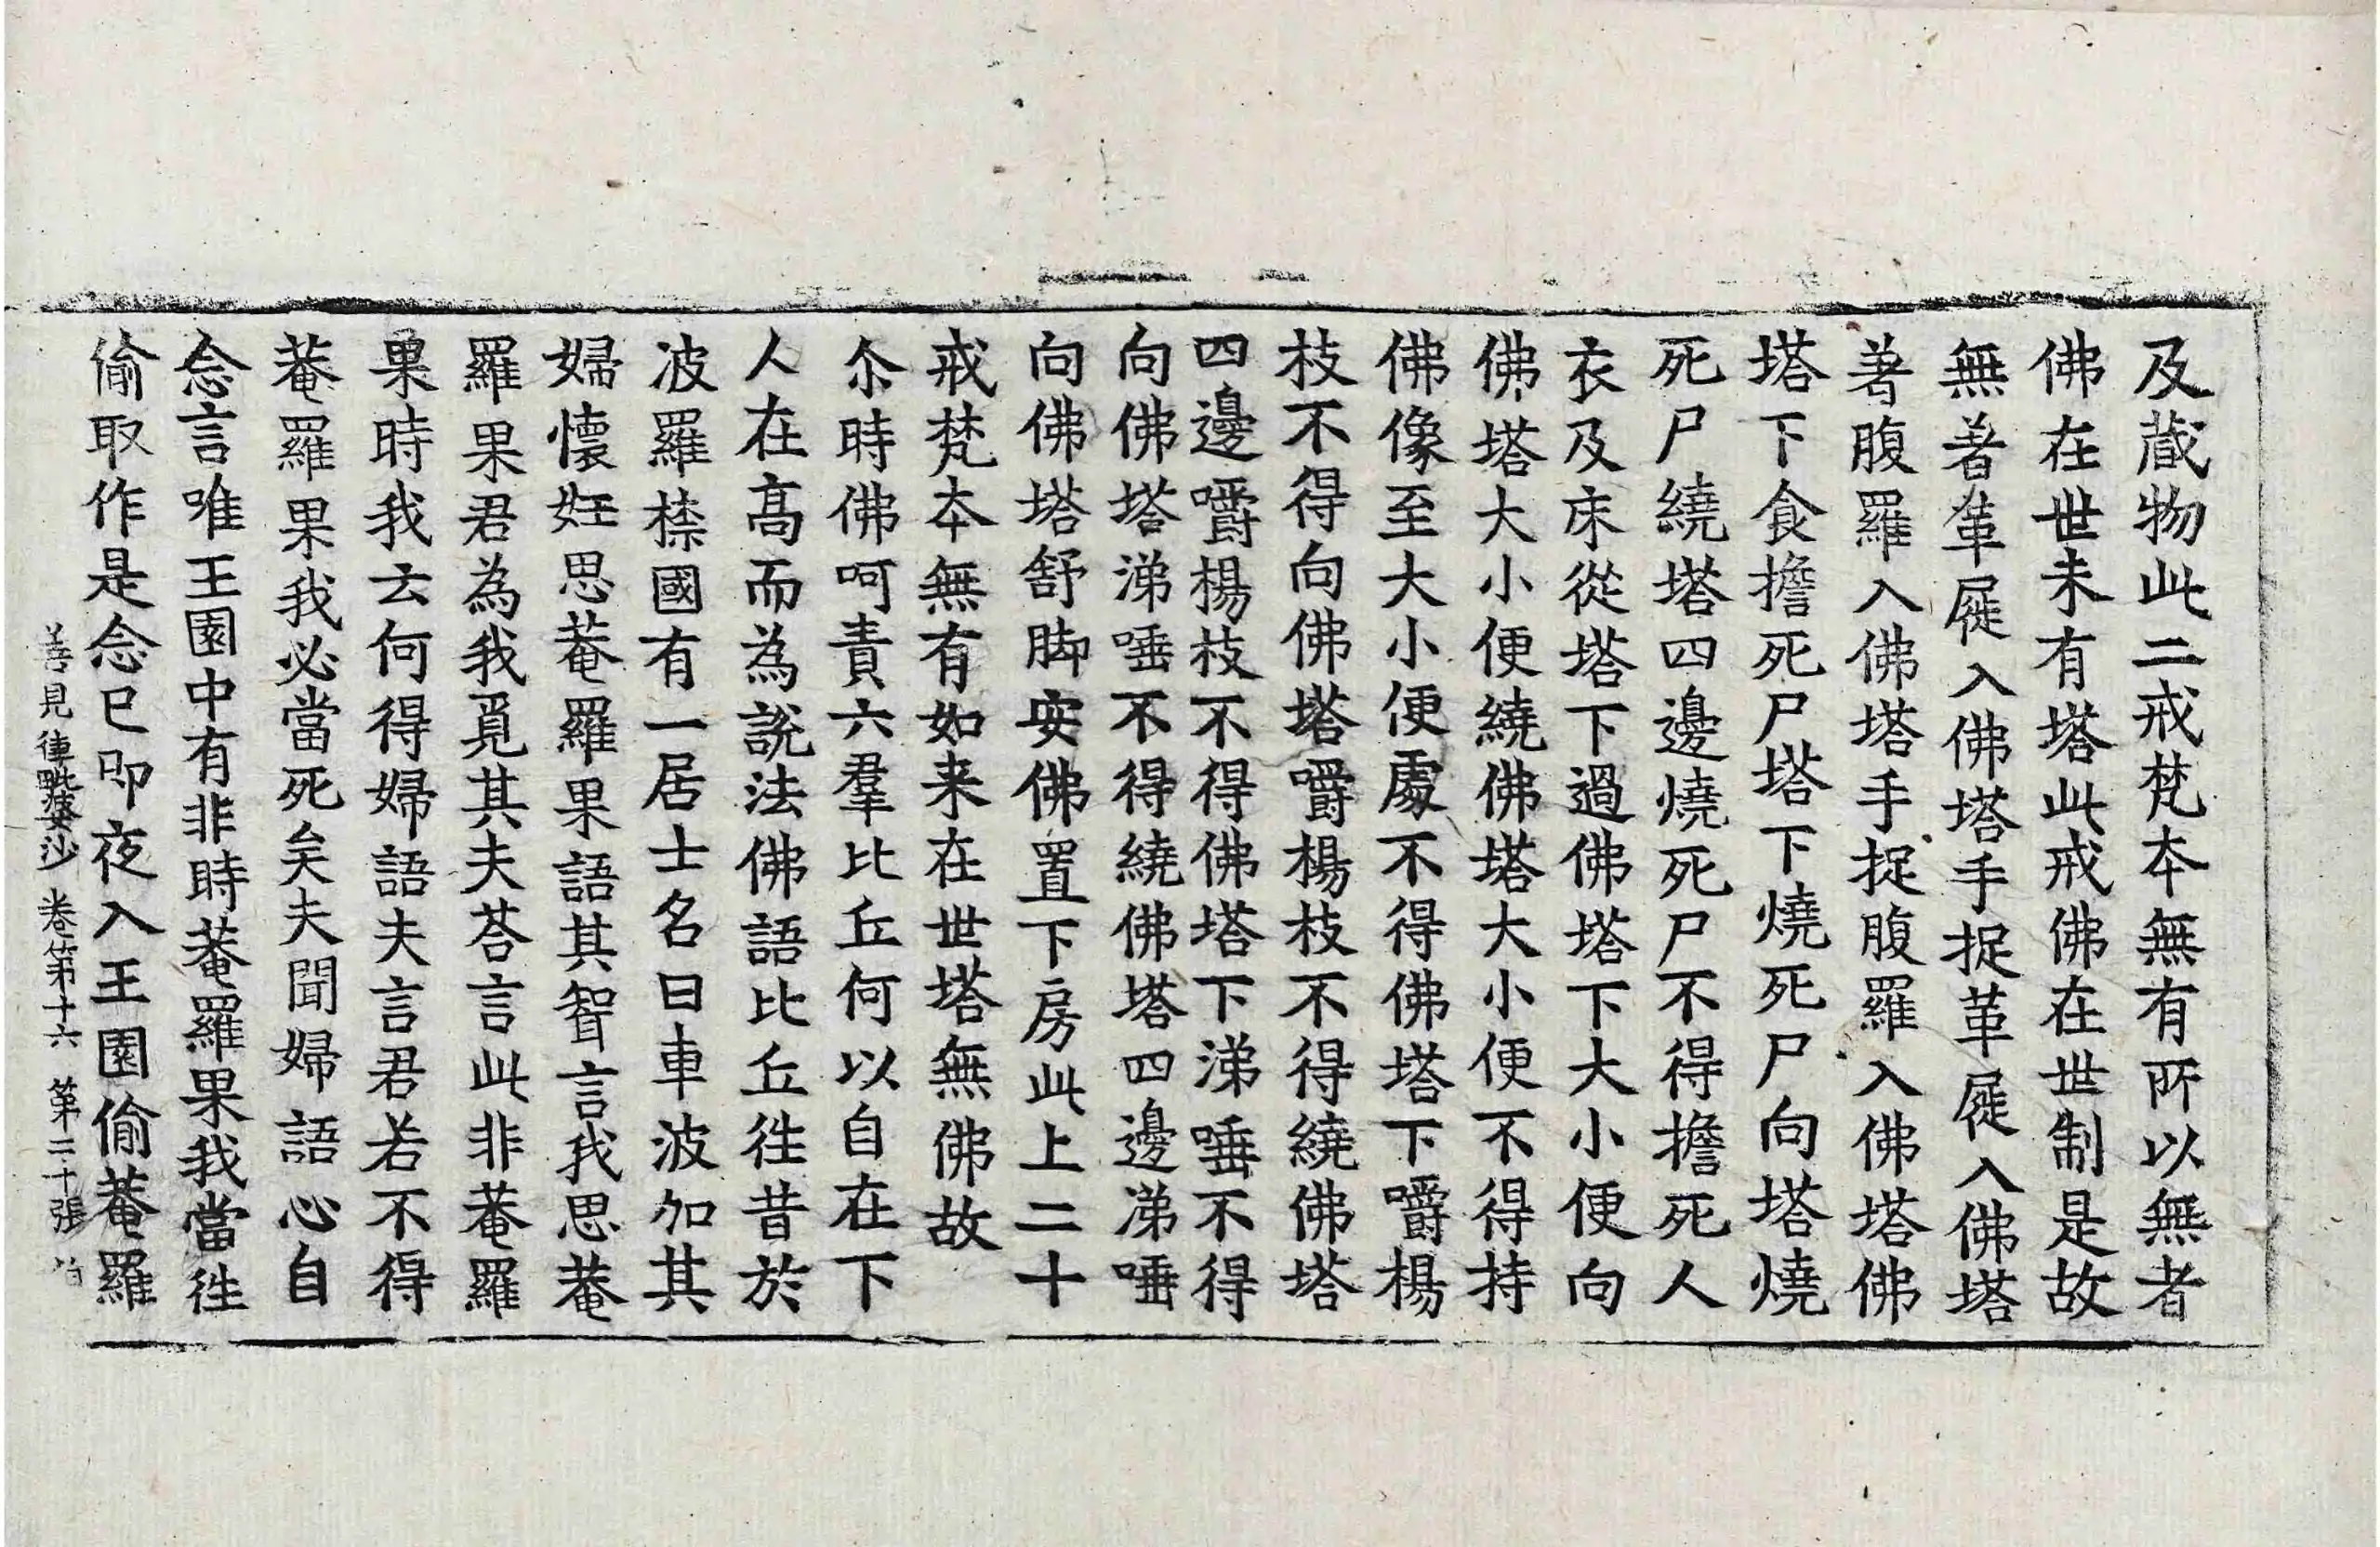 及蔵物此二戒梵本無有所以無者
佛在世未有塔此戒佛在世制是故
無著革屣入佛塔手捉革屣入佛塔
著腹羅入佛塔手捉腹羅入佛塔佛
塔下食擔死尸塔下燒死尸向塔燒
死尸繞塔四邊燒死尸不得擔死人
衣及床從塔下過佛塔下大小便向
佛塔大小便繞佛塔大小便不得持
佛像至大小便處不得佛塔下嚼楊
枝不得向佛塔嚼楊枝不得繞佛塔
四邊嚼楊枝不得佛塔下涕唾不得
向佛塔涕唾不得繞佛塔四邊涕唾
向佛塔舒脚安佛置下房此上二十
戒梵本無有如来在世塔無佛故
尒時佛呵責六羣比丘何以自在下
人在高而為說法佛語比丘徃昔於
波羅㮈國有一居士名曰車波加其
婦懷妊思菴羅果語其聟言我思菴
羅果君為我覓其夫荅言此非菴羅
果時我云何得婦語夫言君若不得
菴羅果我必當死矣夫聞婦語心自
念言唯王園中有非時菴羅果我當徃
偷取作是念已即夜入王園偷菴羅
善見律毗婆沙 卷第十六 第二十張